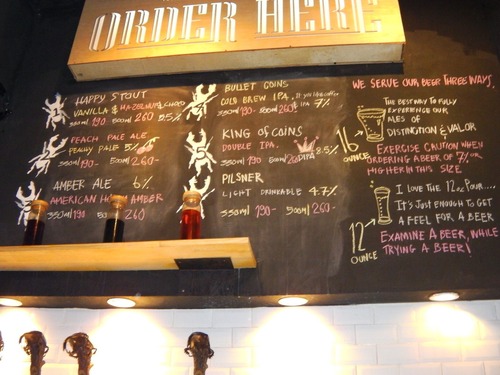 ORDER HERE
HAPPY STOUT
VANILLA & HAZELNUT & CHOCO
350ml 190 500ml 260 8.5%
PEACH PALE ALE
PEACHY PALE 5%
350ml 190 500ml 260
AMBER ALE 6%
AMERICAN HOP AMBER
350ml 190 500ml 260
BULLET COINS
COLD BREW IPA, If you like coffee
350ml 190- 500ml 260 IPA 7%
KING OF COINS
DOUBLE IPA. 8.5%
350ml 190 500ml 260 DIPA
PILSNER
LIGHT DRINKABLE 4.7%
350ml 190- 500ml 260-
WE SERVE OUR BEER THREE WAYS.
16 OUNCE
THE BEST WAY TO FULLY
EXPERIENCE OUR
ALES OF
DISTINCTION & VALOR
EXERCISE CAUTION WHEN
ORDERING A BEER OF 7% OR
HIGHER IN THIS SIZE
12 OUNCE
I LOVE THE 12oz POUR....
IT'S JUST ENOUGH TO GET
A FEEL FOR A BEER
EXAMINE A BEER, WHILE
TRYING A BEER!